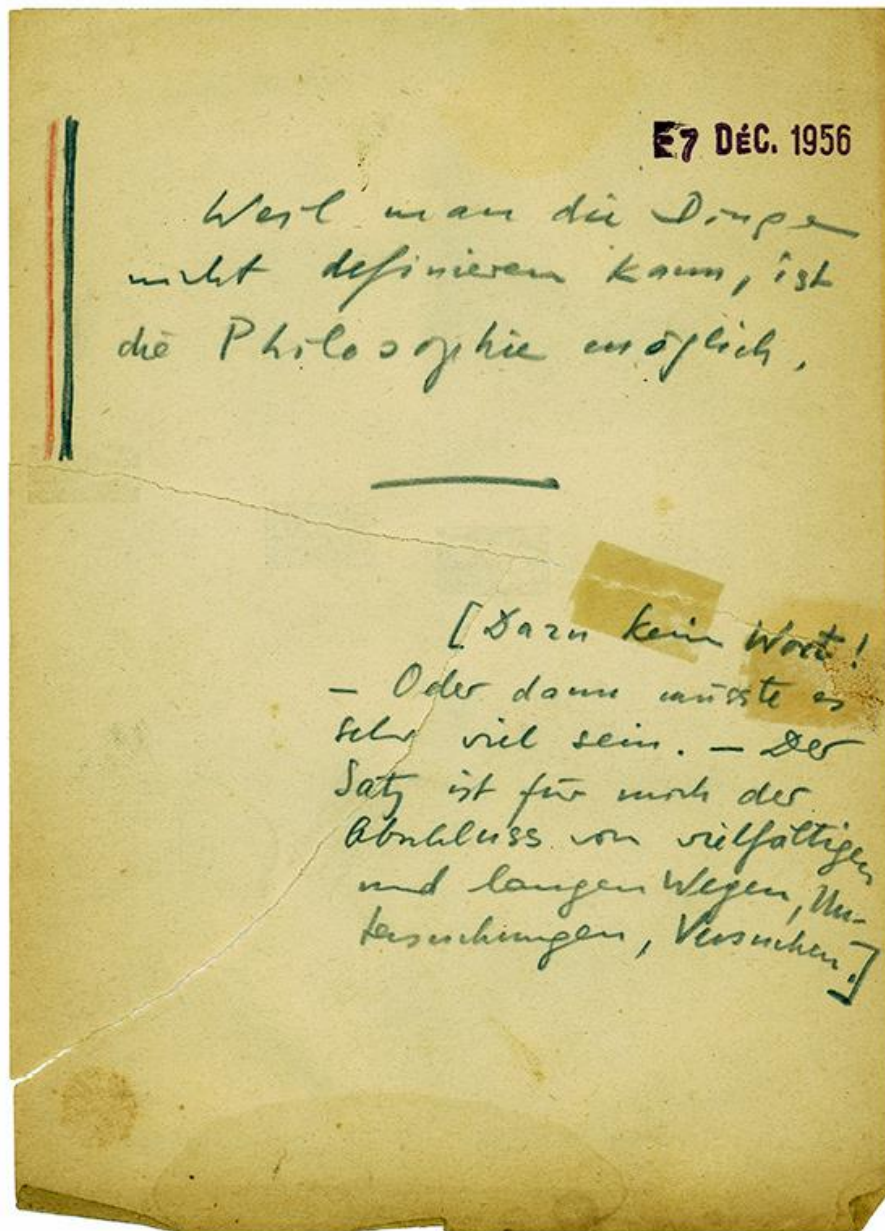 7 DÉC. 1956
Weil man die Dinge
nicht definieren kann, ist
die Philosophie möglich.
[Dazu kein Wort!
— Oder dann müsste es
sehr viel sein. — Der
Satz ist für mich der
Abschluss von vielfältigen
und langen Wegen, Un-
tersuchungen, Versuchen.]